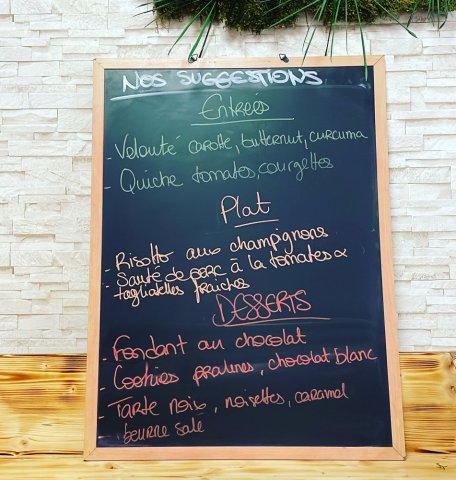 NOS SUGGESTIONS
Entrées
- Velouté carotte, butternut, curcuma
- Quiche tomates, courgettes
Plat
- Risotto aux champignons
- Sauté de porc à la tomates &
tagliatelles fraîches
DESSERTS
- Fondant au chocolat
- Cookies pralines, chocolat blanc
- Tarte noix, noisettes, caramel
beurre salé